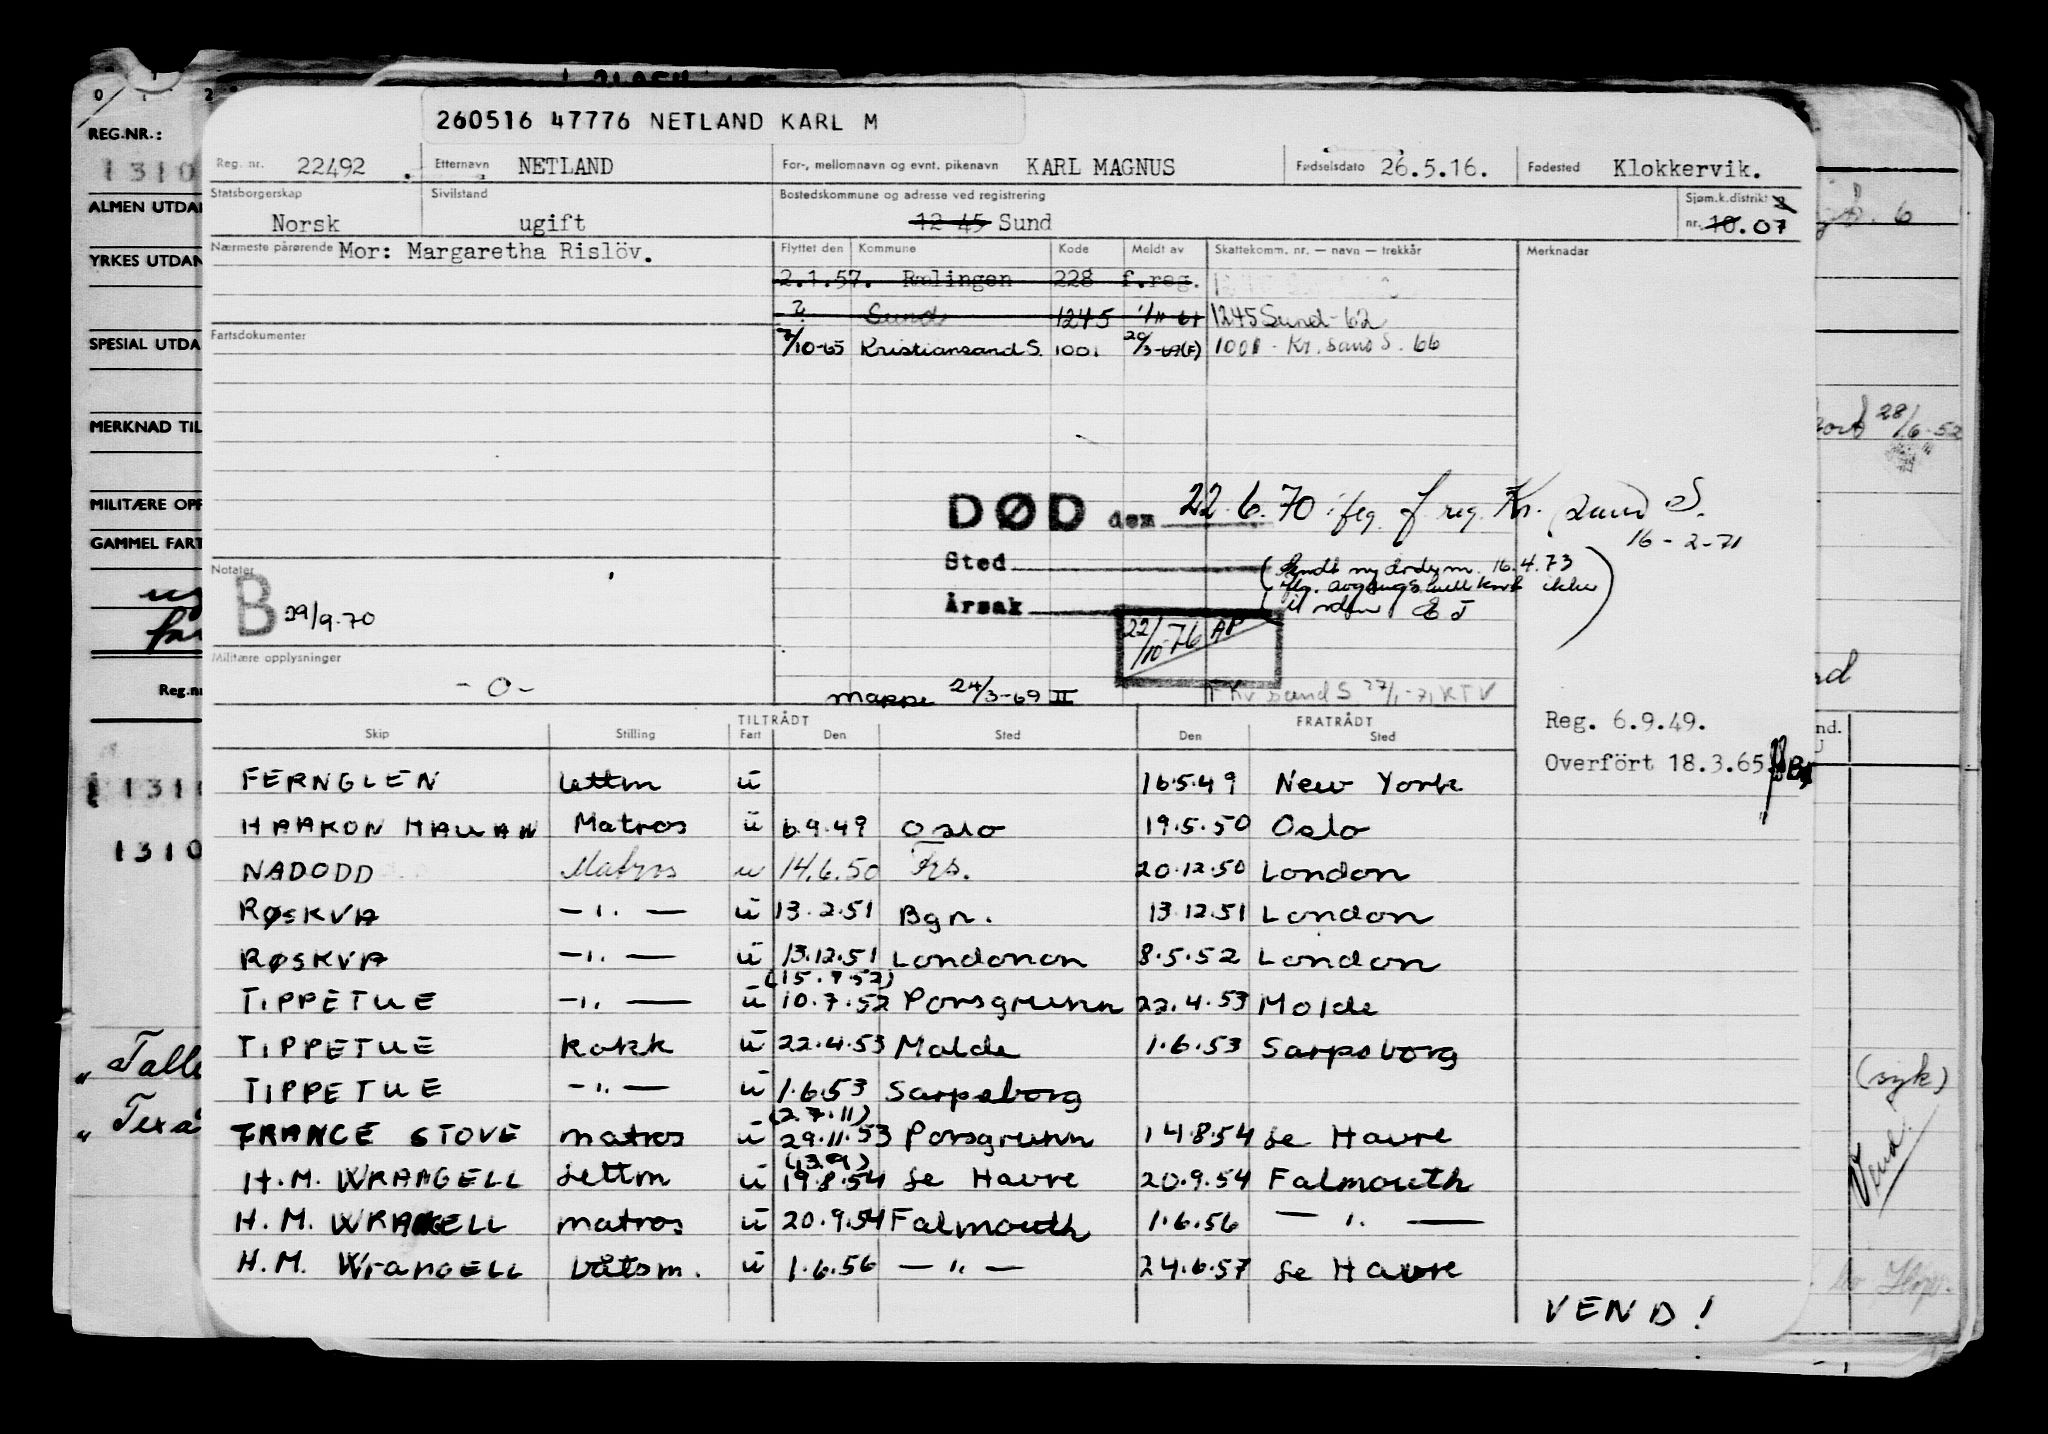 260516 47776 NETLAND KARL M
Reg. nr. 22492 Etternavn NETLAND For-, mellomnavn og evnt. pikenavn KARL MAGNUS Fødselsdato 26.5.16. Fødested Klokkervik.
Statsborgerskap Norsk Sivilstand ugift Bostedskommune og adresse ved registrering 12 45 Sund Sjøm.k.distrikt 2 nr. 10. 07
Nærmeste pårørende Mor: Margaretha Rislöv. Flyttet den Kommune Kode Meldt av Skattekomm. nr. — navn — trekkår Merknader
2.1.57. Rælingen 228 f.reg.
? Sund 1245 1245 Sund-62
Fartsdokumenter 7/10-65 Kristiansand S. 1001 20/3-69(F) 1001 - Kr. sand S. 66
DØD den 22.6.70 iføg. f reg. Kr. sand S.
16-2-71
Sted
(Sendt ny dødsm. 16.4.73
Årsak
Notater B 29/9-70
22/10-76 AP
Militære opplysninger
- 0 -
mappe 24/3-69 II F Kr sand S 27/1-71 KTV
Reg. 6.9.49.
Overfört 18.3.65
Skip Stilling TILTRÅDT Fart Den Sted FRATRÅDT Den Sted
FERNGLEN lettm u 16.5.49 New York
HAAKON HAUAN Matros u 6.9.49 Oslo 19.5.50 Oslo
NADODD Matros u 14.6.50 Frs. 20.12.50 London
RØSKVA —"— u 13.2.51 Bgn. 13.12.51 London
RØSKVA —"— u 13.12.51 Londonon 8.5.52 London
(15.7.52)
TIPPETUE —"— u 10.7.52 Porsgrunn 22.4.53 Molde
TIPPETUE kokk u 22.4.53 Molde 1.6.53 Sarpsborg
TIPPETUE —"— u 1.6.53 Sarpsborg
(27.11)
FRANCE STOVE matros u 29.11.53 Porsgrunn 14.8.54 Le Havre
(13.9)
H.M. WRANGELL Lettm u 19.8.54 Le Havre 20.9.54 Falmouth
H.M. WRANGELL matros u 20.9.54 Falmouth 1.6.56 —"—
H.M. WRANGELL båtsm. u 1.6.56 —"— 24.6.57 Le Havre
VEND!
0 1 2
REG.NR.:
1310
ALMEN UTDA
YRKES UTDAN
SPESIAL UTDA
MERKNAD TIL
MILITÆRE OPP
GAMMEL FART
Reg.nr
1310
1310
„ Talle
„ Texa
6
28/6-52
nd.
(syk)
Vend.